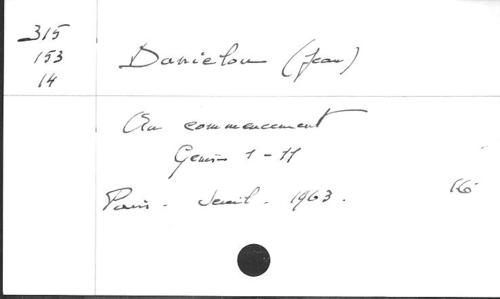 315
153
14
Danielou (Jean)
Au commencement
Genèse 1-11
Paris. Seuil. 1963.